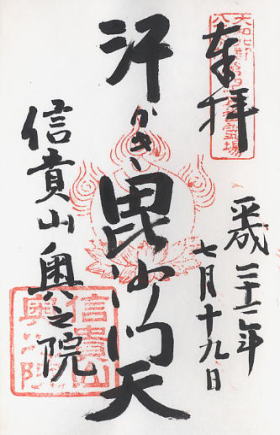 奉拝
平成二十一年
七月十九日
汗かき毘沙門天
信貴山奥之院
信貴山
奥之院